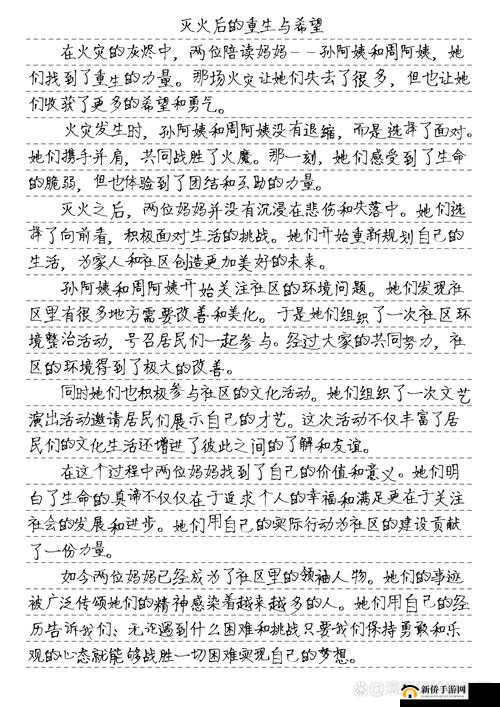 灭火后的重生与希望
在火灾的灰烬中，两位陪读妈妈--孙阿姨和周阿姨，她
们找到了重生的力量。那场火灾让她们失去了很多，但也让她
们收获了更多的希望和勇气。
火灾发生时，孙阿姨和周阿姨没有退缩，而是选择了面对。
她们携手并肩，共同战胜了火魔。那一刻，她们感受到了生命
的脆弱，但也体验到了团结和互助的力量。
灭火之后，两位妈妈并没有沉浸在悲伤和失落中。她们选
择了向前看，积极面对生活的挑战。她们开始重新规划自己的
生活，为家人和社区创造更加美好的未来。
孙阿姨和周阿姨开始关注社区的环境问题。她们发现社
区里有很多地方需要改善和美化。于是她们组织了一次社区环
境整治活动，号召居民们一起参与。经过大家的共同努力，社
区的环境得到了极大的改善。
同时她们也积极参与社区的文化活动。她们组织了一次文艺
演出活动邀请居民们展示自己的才艺。这次活动不仅丰富了居
民们的文化生活还增进了彼此之间的了解和友谊。
在这个过程中两位妈妈找到了自己的价值和意义。她们明
白了生命的真谛不仅仅在于追求个人的幸福和满足更在于关注
社会的发展和进步。她们用自己的实际行动为社区的建设贡献
了一份力量。
如今两位妈妈已经成为了社区里的领袖人物。她们的事迹
被广泛传颂她们的精神感染着越来越多的人。她们用自己的经
历告诉我们：无论遇到什么困难和挑战只要我们保持勇敢和乐
观的心态就能够战胜一切困难实现自己的梦想。
新侨手游网